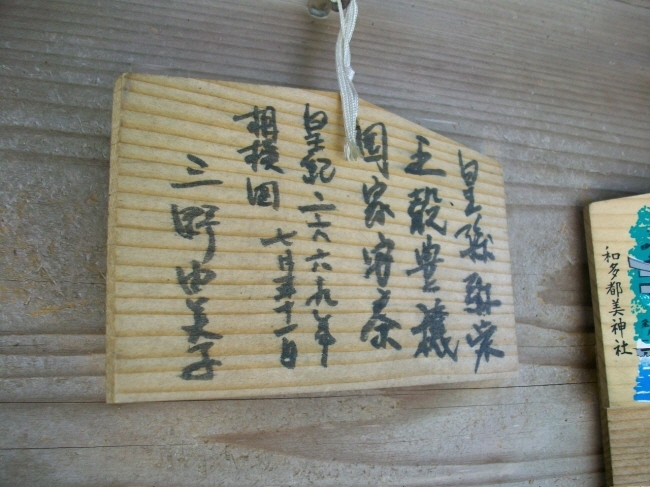 皇孫弥栄
五穀豊穣
国家安泰
皇紀二六六九年
七月二十一日
相模国
三野由美子
和多都美神社